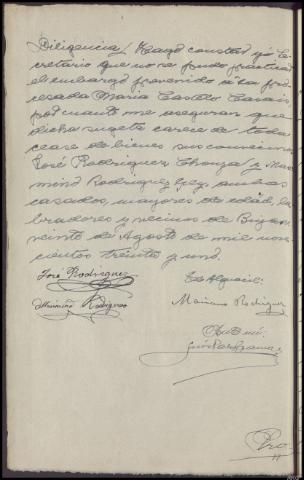 Diligencia/ Hago constar yo Se
cretario que no se pudo practicar
el embargo prevenido a la pro
cesada Maria Castelo
por cuanto me aseguran que
dicha sugeta carece de toda
clase de bienes sus convecinos
José Rodriguez y Max
imino Rodriguez ambos
casados, mayores de edad, la
bradores y vecinos de
veinte de Agosto de mil nove
cientos treinta y uno.
José Rodriguez
El Alguacil:
Maximino Rodriguez
Mariano Rodriguez